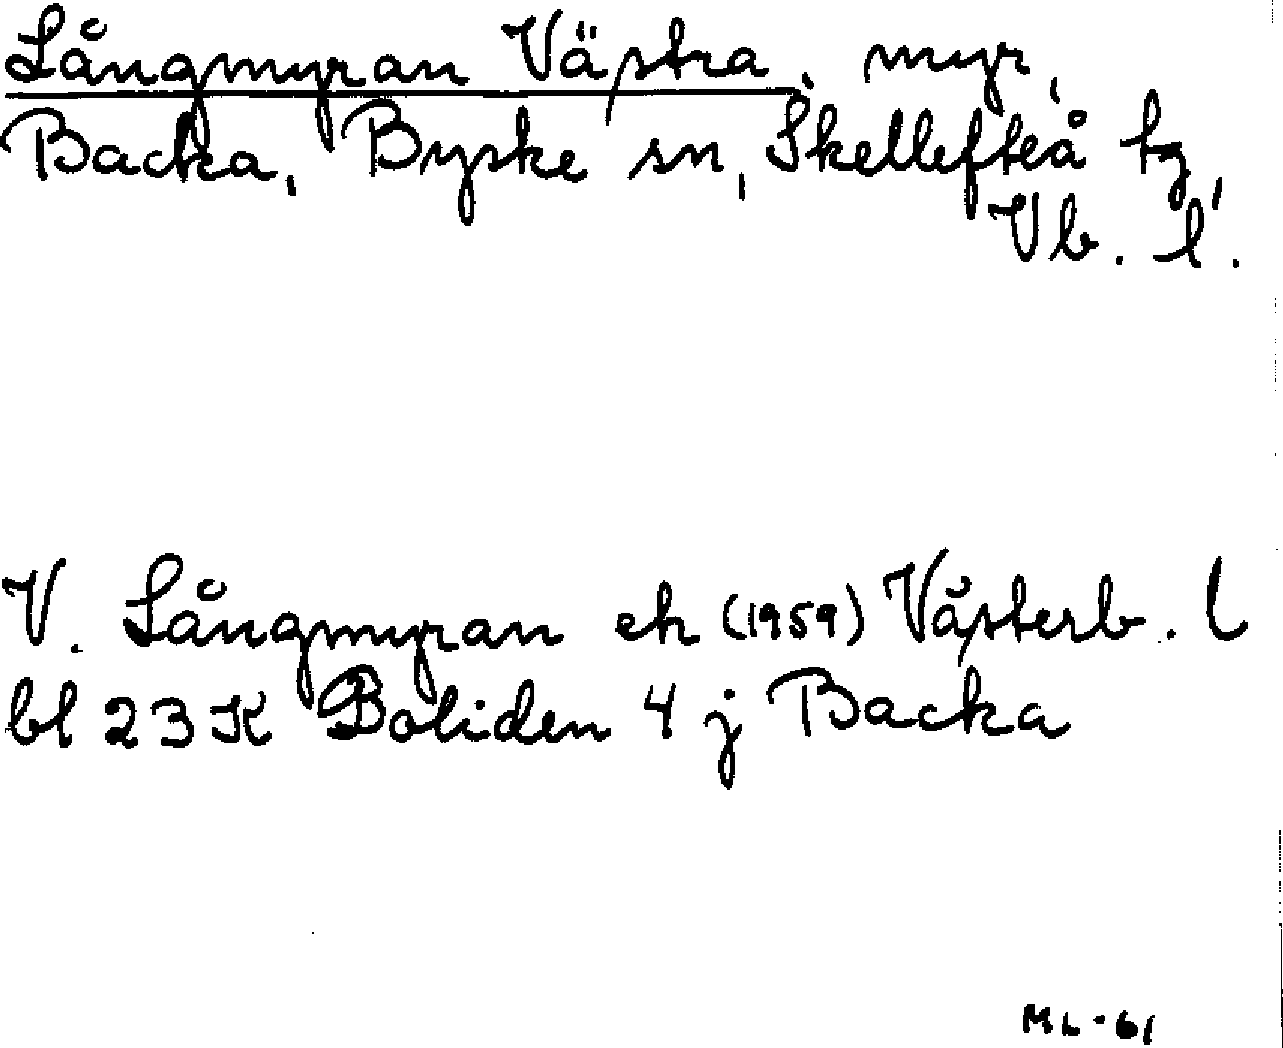 Långmyran Västra, myr,
Backa, Byske sn, Skellefteå tg,
Vb. l.
V. Långmyran ek (1959) Västerb. l
bl 23 K Boliden 4 j Backa
ML-61